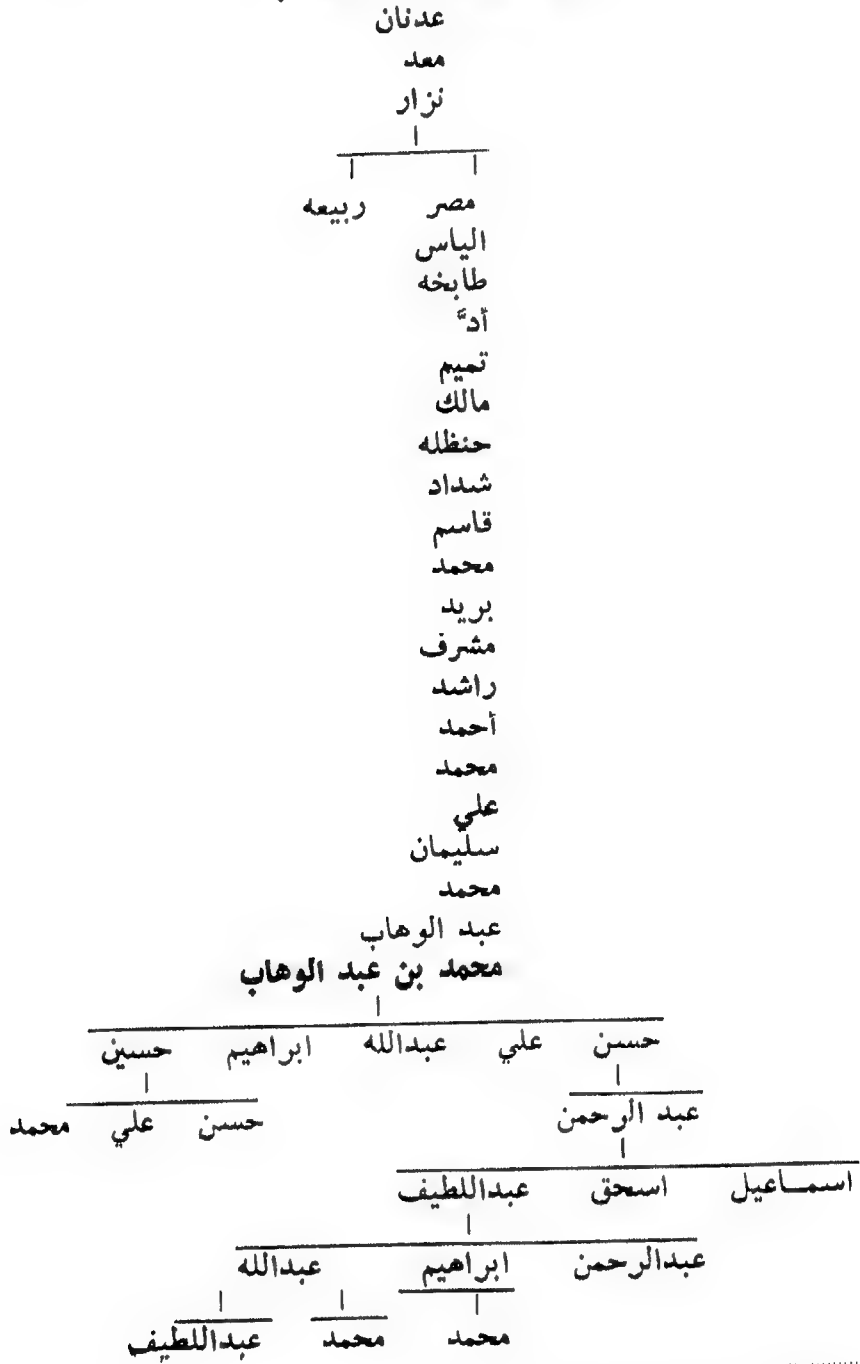 عدنان
معد
نزار
مصر ربيعه
الياس
طابخه
أدَّ
تميم
مالك
حنظله
شداد
قاسم
محمد
بريد
مشرف
راشد
أحمد
محمد
علي
سليمان
محمد
عبد الوهاب
محمد بن عبد الوهاب
حسن علي عبدالله ابراهيم حسين
عبد الرحمن حسن علي محمد
اسمـاعيل اسحق عبداللطيف
عبدالرحمن ابراهيم عبدالله
محمد محمد عبداللطيف